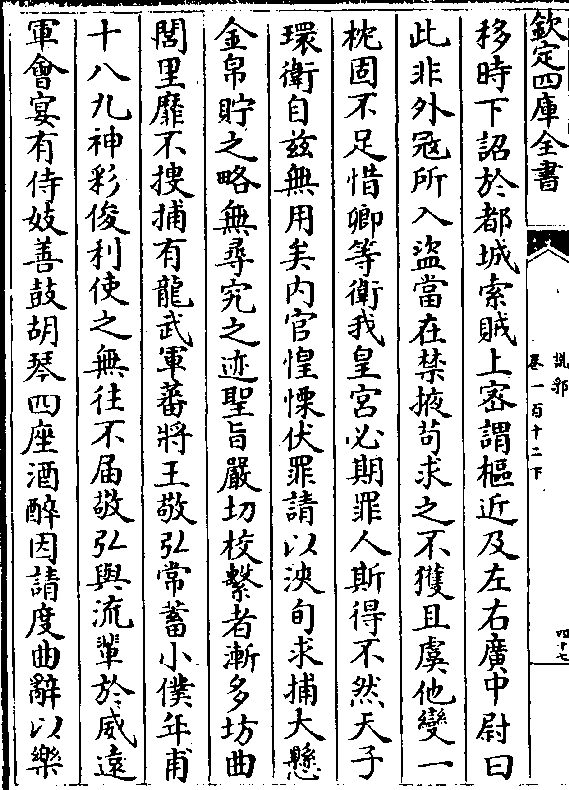 欽定四庫全書
說郛
卷一百十二下
四十七
移時下詔於都城索賊上密謂樞近及左右廣中尉曰
此非外冦所入盜當在禁掖茍求之不獲且虞他變一
枕固不足惜卿等衛我皇宫必期罪人斯得不然天子
環衛自兹無用矣内官惶慄伏罪請以浹旬求捕大懸
金帛貯之略無尋究之迹聖旨嚴切校繫者漸多坊曲
閭里靡不搜捕有龍武軍蕃將王敬弘常蓄小僕年甫
十八九神彩俊利使之無往不届敬弘與流輩於威遠
軍會宴有侍妓善鼓胡琴四座酒醉因請度曲辭以樂